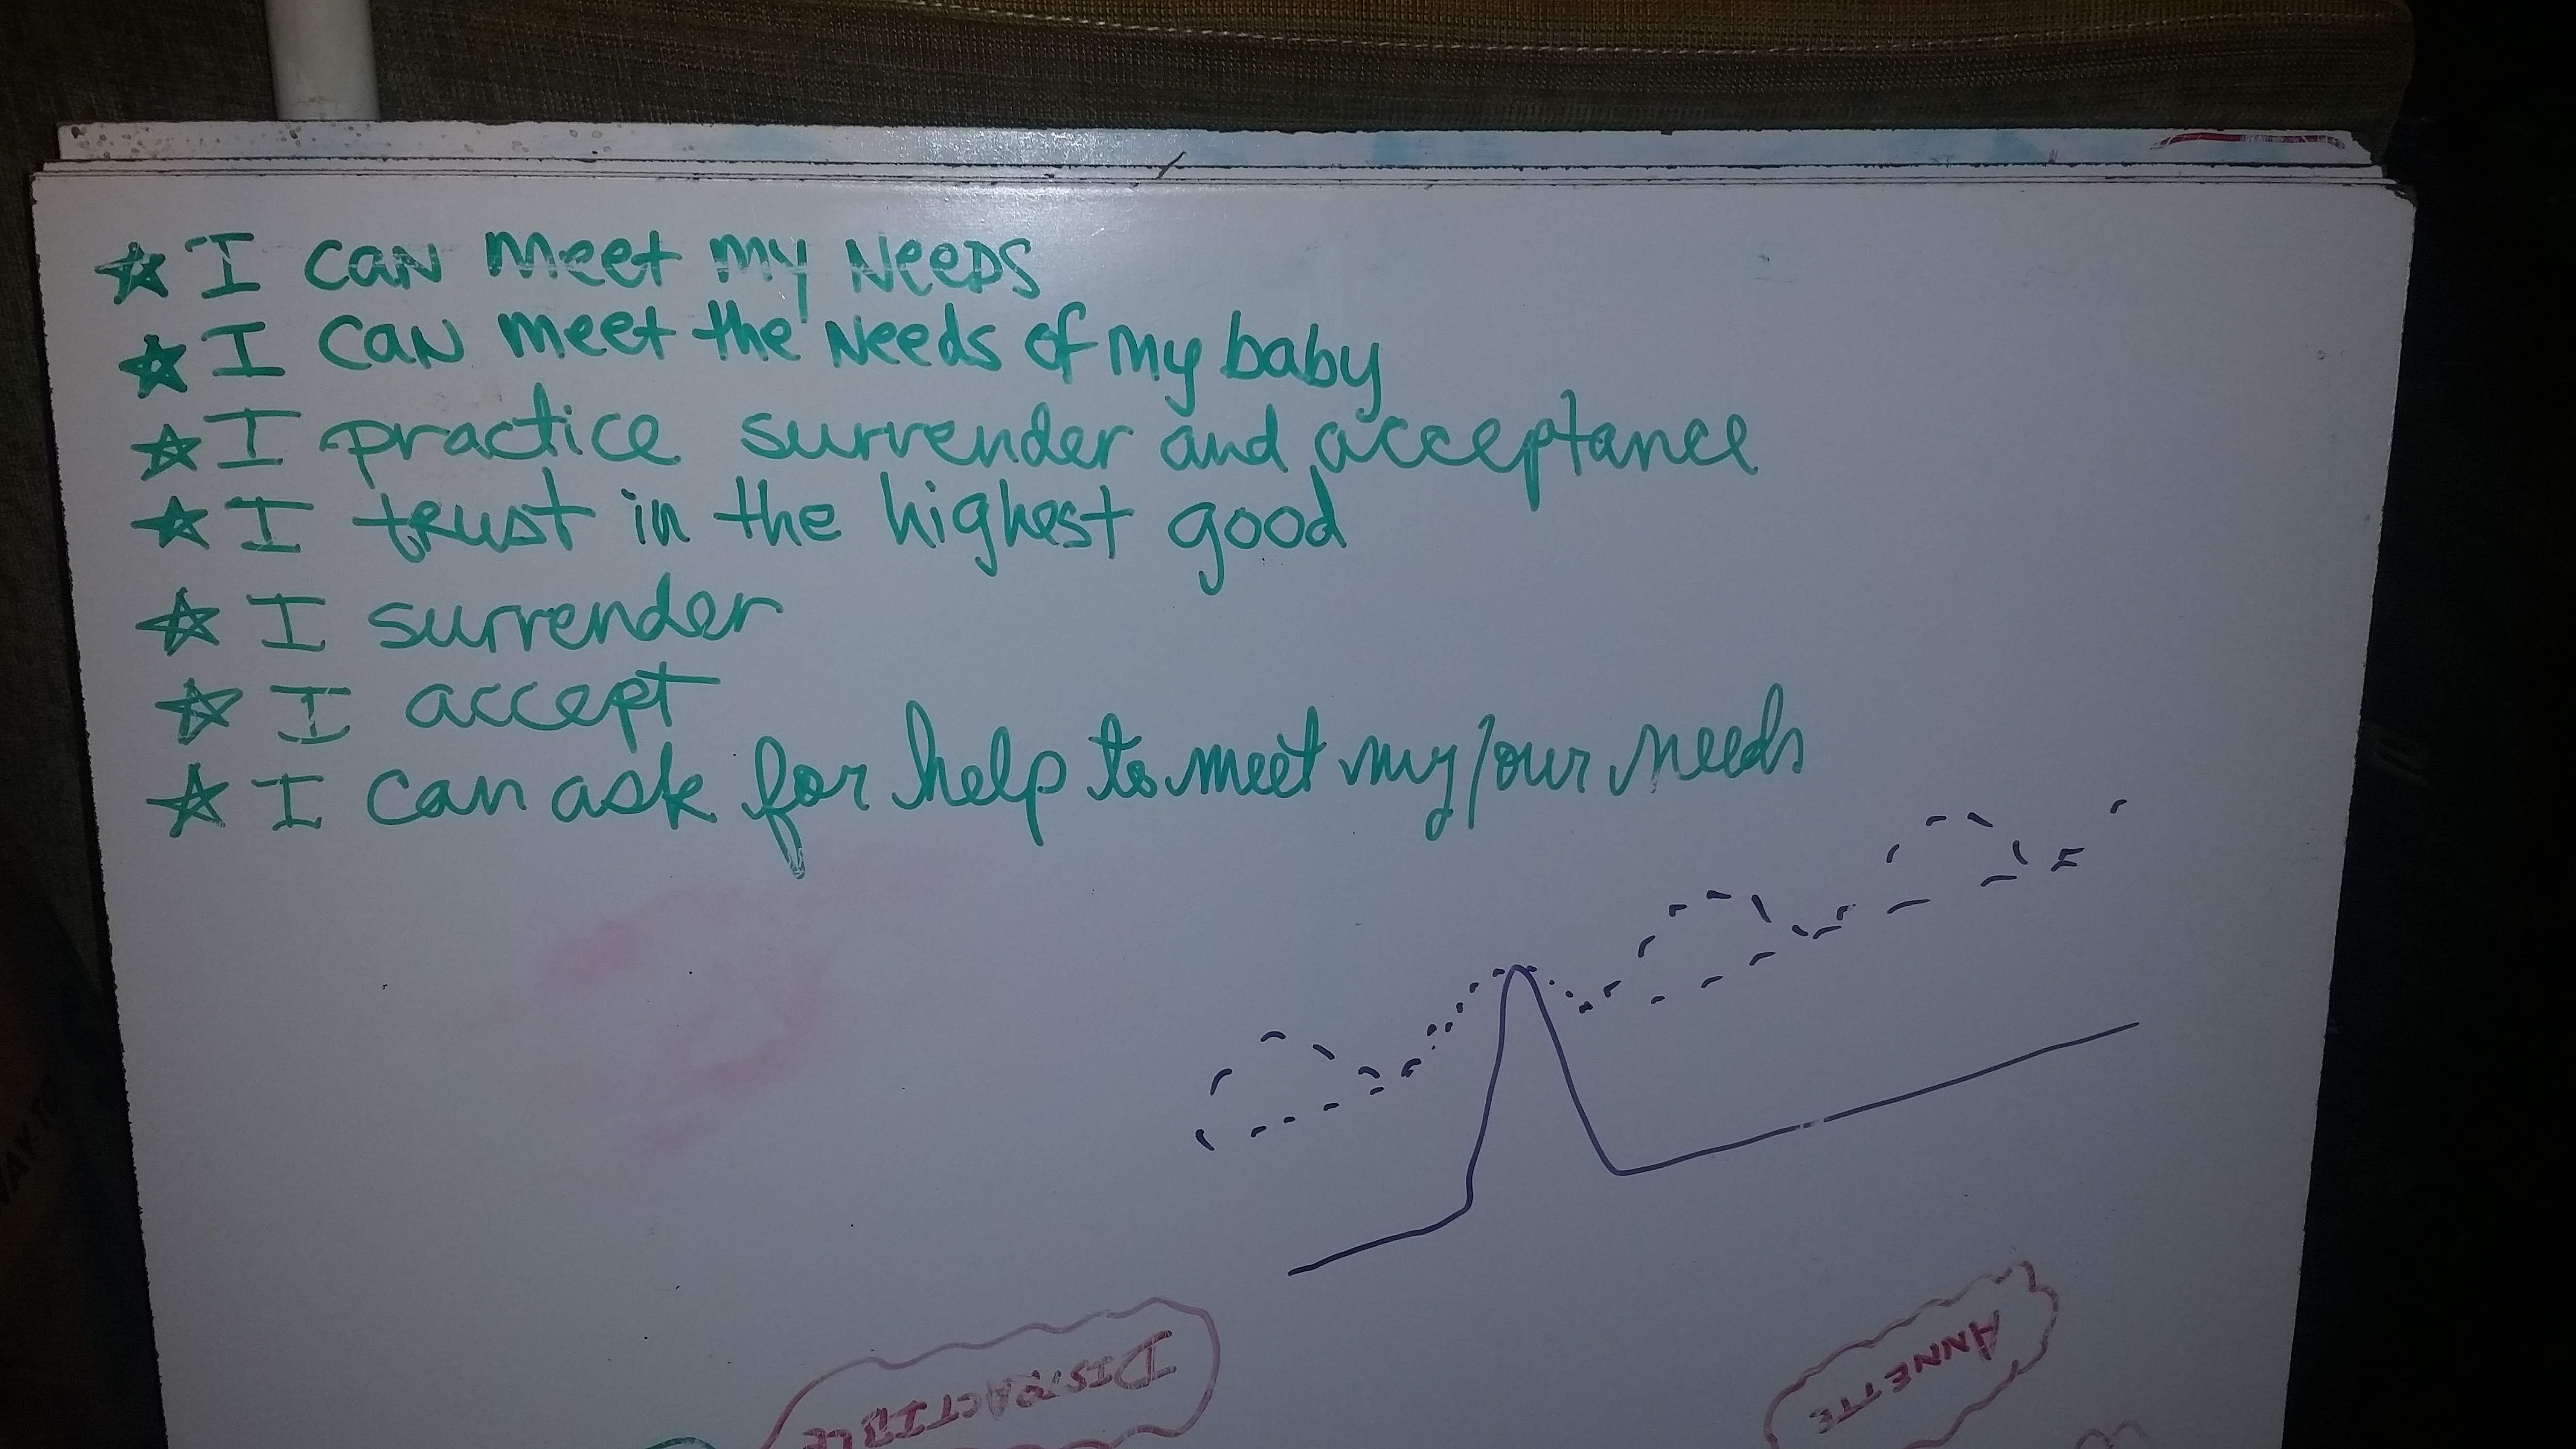 ☆ I can meet my needs
☆ I can meet the needs of my baby
☆ I practice surrender and acceptance
☆ I trust in the highest good
☆ I surrender
☆ I accept
☆ I can ask for help to meet my/our needs
DISTRACTIBLE
ANNETTE